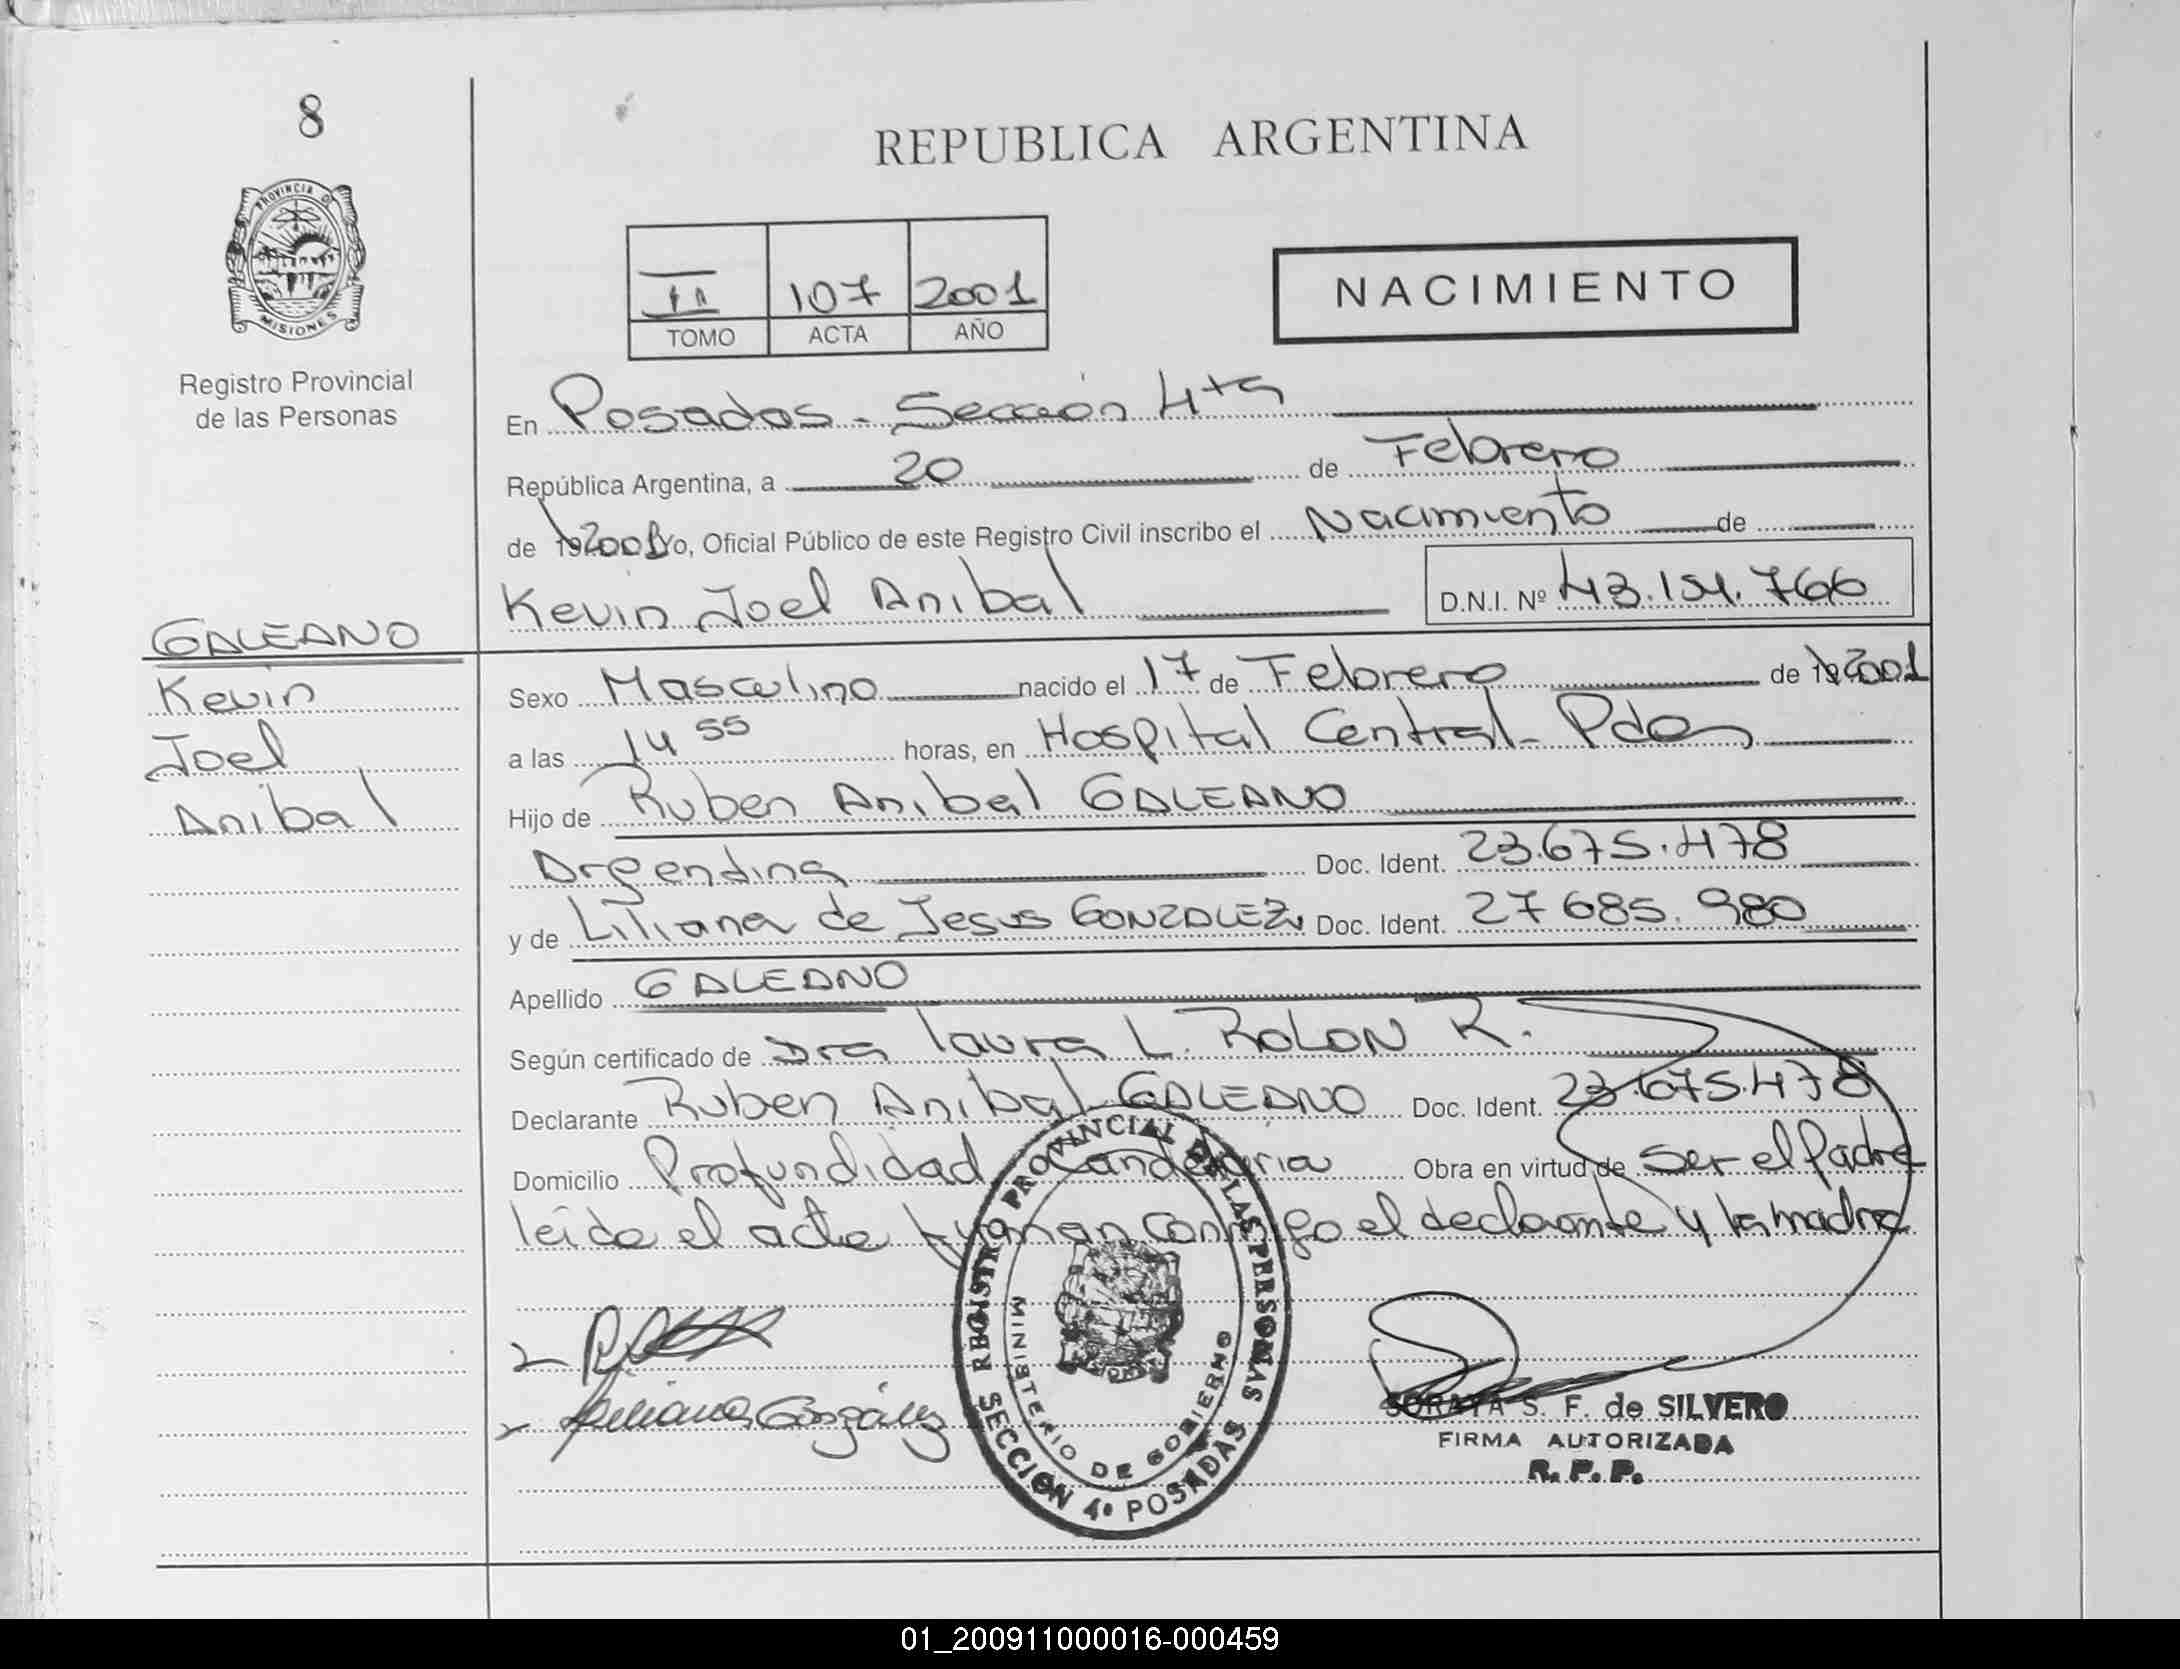 8
REPUBLICA ARGENTINA
PROVINCIA D
MISIONES
Registro Provincial
de las Personas
II 107 2001
TOMO ACTA AÑO
NACIMIENTO
En Posadas - Sección 4ta
República Argentina, a 20 de Febrero
de 19 2001 Yo, Oficial Público de este Registro Civil inscribo el Nacimiento de
Kevin Joel Anibal D.N.I. Nº 43.151.766
GALEANO
Kevin
Joel
Anibal
Sexo Masculino nacido el 17 de Febrero de 19 2001
a las 14 55 horas, en Hospital Central - Pdas
Hijo de Ruben Anibal GALEANO
Argentina Doc. Ident. 23.675.478
y de Liliana de Jesus GONZALEZ Doc. Ident. 27 685.980
Apellido GALEANO
Según certificado de Dra Laura L. ROLON R.
Declarante Ruben Anibal GALEANO Doc. Ident. 23.675.478
Domicilio Profundidad Candelaria Obra en virtud de ser el Padre
leida el acta firman conmigo el declarante y la madre
Liliana González
REGISTRO PROVINCIAL DE LAS PERSONAS
MINISTERIO DE GOBIERNO
SECCION 4º POSADAS
SORAYA S. F. de SILVERO
FIRMA AUTORIZADA
R. P. P.
01_200911000016-000459